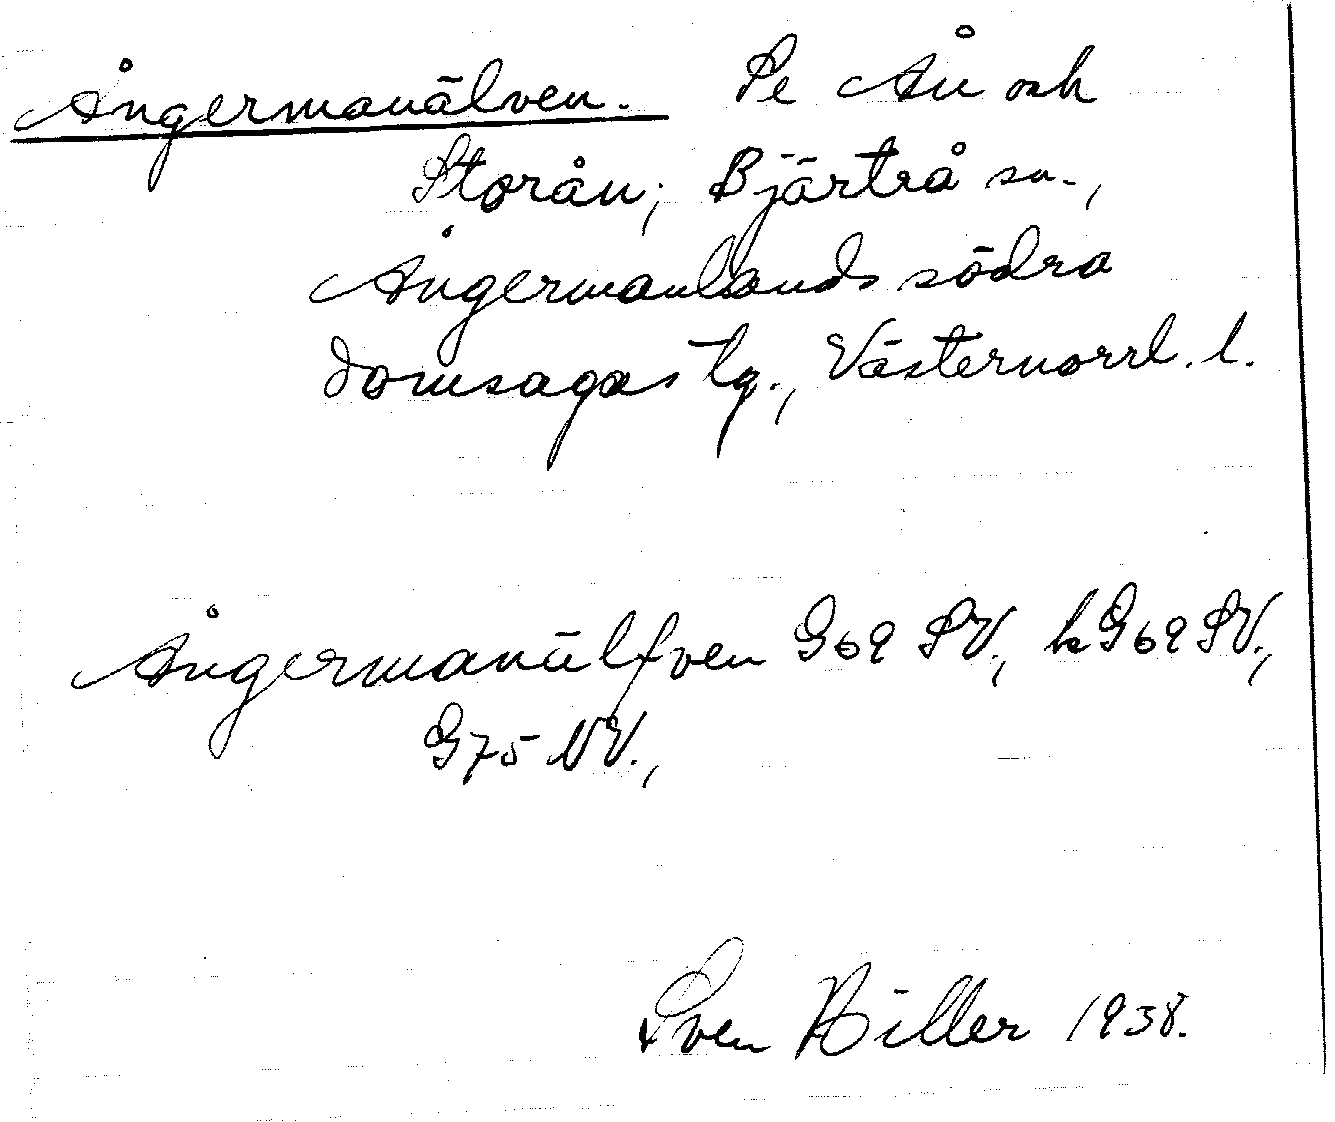 Ångermanälven. Se Ån och
Storån, Bjärtrå sn.,
Ångermanlands södra
domsagas tg., Västernorrl. l.
Ångermanälfven G69 SV., kG69 SV.,
G75 NV.,
Sven Hiller 1938.